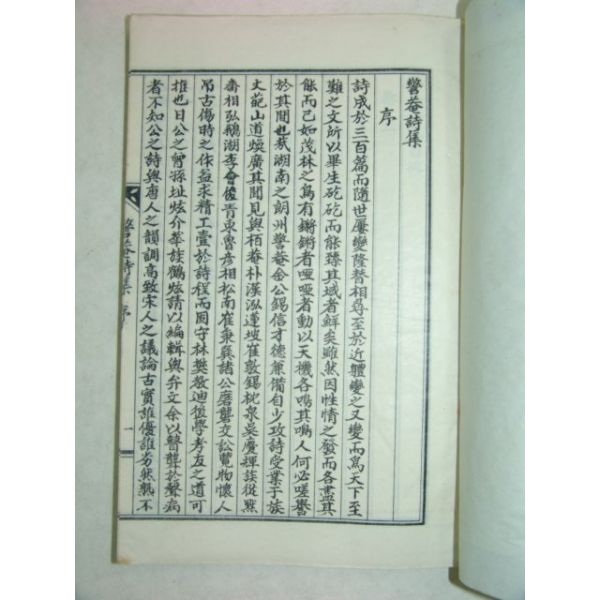 警菴詩集
序
詩成於三百篇而隨世屢變隆替相尋至於近軆變之又變而爲天下至
難之文所以畢生矻矻而能臻其域者鮮矣雖然因性情之發而各盡其
能而已如茂林之鳥有鏘鏘者啞啞者動以天機各鳴其鳴人何必嗟訾
於其間也哉湖南之朗州警菴金公錫信才德兼備自少攻詩受業于族
丈葩山道煥廣其聞見與栢菴朴漢泓蓮坡崔敦錫枕泉吳慶輝族從默
斋相弘鵝湖李會俊靑東魯彦相松南崔秉巽諸公磨礱交訟覽物懷人
吊古傷時之作益求精工壹於詩程而固守林樊敎迪後學孝友之道可
推也日公之曾孫址炫介峯族鶴炫請以編輯與弁文余以瞽聾於聲病
者不知公之詩與唐人之韻調高致宋人之議論古實誰優誰劣然孰不
警菴詩集 序
一